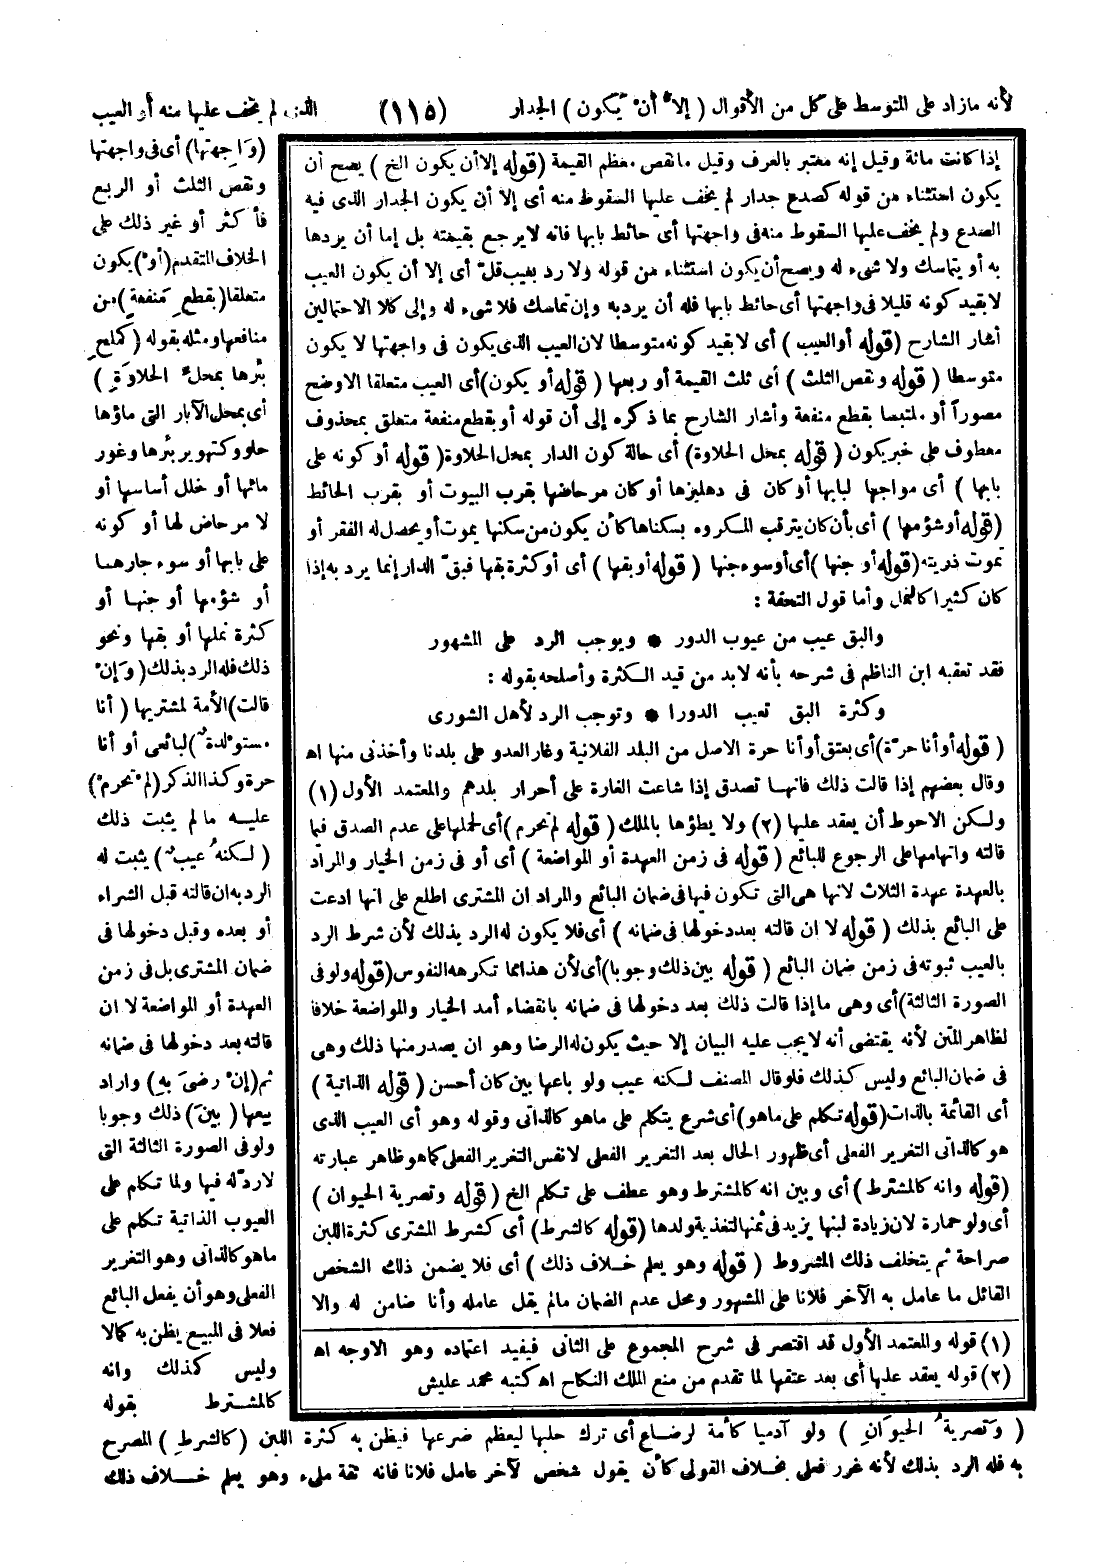 لأنه مازاد على المتوسط على كل من الأقوال ( إلا أن يكون ) الجدار (١١٥) الذى لم يخف عليها منه أو العيب
( وَاجهتها) أى فى واجهتها
ونقص الثلث أو الربع
فأكثر أو غير ذلك على
الخلاف المتقدم (أو) يكون
متعلقا (بقطع مَنفعةٍ) من
منافعها ومثله بقوله (كملح
بئرها بمحلِّ الحلاوَةِ )
أى بمحل الآبار التى ماؤها
حلو وكتهوير بئرها وغور
مائها أو خلل أساسها أو
لا مرحاض لها أو كونه
على بابها أو سوء جارها
أو شؤمها أو جنها أو
كثرة نملها أو بقها ونحو
ذلك فله الرد بذلك ( وَإنْ
قالت) الأمة لمشتريها ( أنا
مستولدة ) لبائعى أو أنا
حرة وكذا الذكر (لم تحرم)
عليه مالم يثبت ذلك
( لكنهُ عيبٌ ) يثبت له
الرد به ان قالته قبل الشراء
أو بعده وقبل دخولها فى
ضمان المشترى بل فى زمن
العهدة أو المواضعة لا ان
قالته بعد دخولها فى ضمانه
ثم (إنْ رضىَ بهِ) واراد
بيعها ( بينَ ) ذلك وجوبا
ولو فى الصورة الثالثة التى
لا ردّ له فيها ولما تكلم على
العيوب الذاتية تكلم على
ماهو كالذاتى وهو التغرير
الفعلى وهو أن يفعل البائع
فعلا فى المبيع يظن به كمالا
وليس كذلك وانه
كالمشترط بقوله
( وَتصريةُ الحيوَانِ ) ولو آدميا كأمة لرضاع أى ترك حلبها ليعظم ضرعها فيظن به كثرة اللبن (كالشرطِ) المصرح
به فله الرد بذلك لأنه غرر فعلى بخلاف القولى كأن يقول شخص لآخر عامل فلانا فانه ثقة ملىء وهو يعلم خلاف ذلك
إذا كانت مائة وقيل إنه معتبر بالعرف وقيل ما نقص معظم القيمة (قوله إلا أن يكون الخ ) يصح أن
يكون استثناء من قوله كصدع جدار لم يخف عليها السقوط منه أى إلا أن يكون الجدار الذى فيه
الصدع ولم يخف عليها السقوط منه فى واجهتها أى حائط بابها فانه لا يرجع بقيمته بل إما أن يردها
به أو يتماسك ولا شىء له ويصح أن يكون استثناء من قوله ولا رد بعيب قلّ أى إلا أن يكون العيب
لا بقيد كونه قليلا فى واجهتها أى حائط بابها فله أن يرد به وإن تماسك فلا شىء له وإلى كلا الاحتمالين
أشار الشارح (قوله أو العيب ) أى لا بقيد كونه متوسطا لان العيب الذى يكون فى واجهتها لا يكون
متوسطا ( قوله ونقص الثلث ) أى ثلث القيمة أو ربعها ( قوله أو يكون) أى العيب متعلقا الاوضح
مصوراً أو ملتبسا بقطع منفعة وأشار الشارح بما ذكره إلى أن قوله أو بقطع منفعة متعلق بمحذوف
معطوف على خبر يكون ( قوله بمحل الحلاوة) أى حالة كون الدار بمحل الحلاوة ( قوله أو كونه على
بابها ) أى مواجها لبابها أو كان فى دهليزها أو كان مرحاضها بقرب البيوت أو بقرب الحائط
(قوله أو شؤمها ) أى بأن كان يترقب المكروه بسكناها كأن يكون من سكنها يموت أو يحصل له الفقر أو
تموت ذريته (قوله أو جنها ) أى أو سوء جنها ( قوله أو بقها ) أى أو كثرة بقها فبقّ الدار إنما يرد به إذا
كان كثيرا كالنمل وأما قول التحفة :
والبق عيب من عيوب الدور * ويوجب الرد على المشهور
فقد تعقبه ابن الناظم فى شرحه بأنه لابد من قيد الكثرة وأصلحه بقوله :
وكثرة البق تعيب الدورا * وتوجب الرد لأهل الشورى
( قوله أو أنا حرّة) أى بعتق أو أنا حرة الاصل من البلد الفلانية وغار العدو على بلدنا وأخذنى منها اه
وقال بعضهم إذا قالت ذلك فانها تصدق إذا شاعت الغارة على أحرار بلدهم والمعتمد الأول (١)
ولكن الاحوط أن يعقد عليها (٢) ولا يطؤها بالملك ( قوله لم تحرم ) أى لحملها على عدم الصدق فيما
قالته واتهامها على الرجوع للبائع ( قوله فى زمن العهدة أو المواضعة ) أى أو فى زمن الخيار والمراد
بالعهدة عهدة الثلاث لانها هى التى تكون فيها فى ضمان البائع والمراد ان المشترى اطلع على انها ادعت
على البائع بذلك ( قوله لا ان قالته بعد دخولها فى ضمانه ) أى فلا يكون له الرد بذلك لأن شرط الرد
بالعيب ثبوته فى زمن ضمان البائع ( قوله بين ذلك وجوبا) أى لأن هذا مما تكرهه النفوس (قوله ولو فى
الصورة الثالثة) أى وهى ما إذا قالت ذلك بعد دخولها فى ضمانه بانقضاء أمد الخيار والمواضعة خلافا
لظاهر المتن لأنه يقتضى أنه لا يجب عليه البيان إلا حيث يكون له الرضا وهو ان يصدر منها ذلك وهى
فى ضمان البائع وليس كذلك فلو قال المصنف لكنه عيب ولو باعها بين كان أحسن ( قوله الذاتية )
أى القائمة بالذات (قوله تكلم على ماهو) أى شرع يتكلم على ماهو كالذاتى وقوله وهو أى العيب الذى
هو كالذاتى التغرير الفعلى أى ظهور الحال بعد التغرير الفعلى لا نفس التغرير الفعلى كما هو ظاهر عبارته
(قوله وانه كالمشترط) أى وبين انه كالمشترط وهو عطف على تكلم الخ ( قوله وتصرية الحيوان )
أى ولو حمارة لان زيادة لبنها يزيد فى ثمنها لتغذية ولدها (قوله كالشرط) أى كشرط المشترى كثرة اللبن
صراحة ثم يتخلف ذلك المشروط ( قوله وهو يعلم خلاف ذلك ) أى فلا يضمن ذلك الشخص
القائل ما عامل به الآخر فلانا على المشهور ومحل عدم الضمان مالم يقل عامله وأنا ضامن له والا
(١) قوله والمعتمد الأول قد اقتصر فى شرح المجموع على الثانى فيفيد اعتماده وهو الاوجه اه
(٢) قوله يعقد عليها أى بعد عتقها لما تقدم من منع الملك النكاح اه كتبه محمد عليش